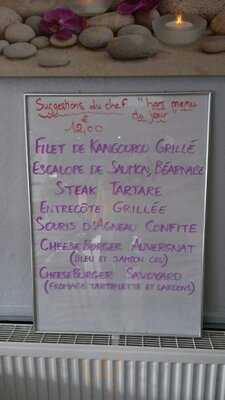 Suggestions du chef "hors menu
du jour
€
12,00
FILET DE KANGOUROU GRILLÉ
ESCALOPE DE SAUMON, BÉARNAISE
STEAK TARTARE
ENTRECÔTE GRILLÉE
SOURIS D'AGNEAU CONFITE
CHEESE BURGER AUVERGNAT
(BLEU ET JAMBON CRU)
CHEESE BURGER SAVOYARD
(FROMAGE TARTIFLETTE ET LARDONS)